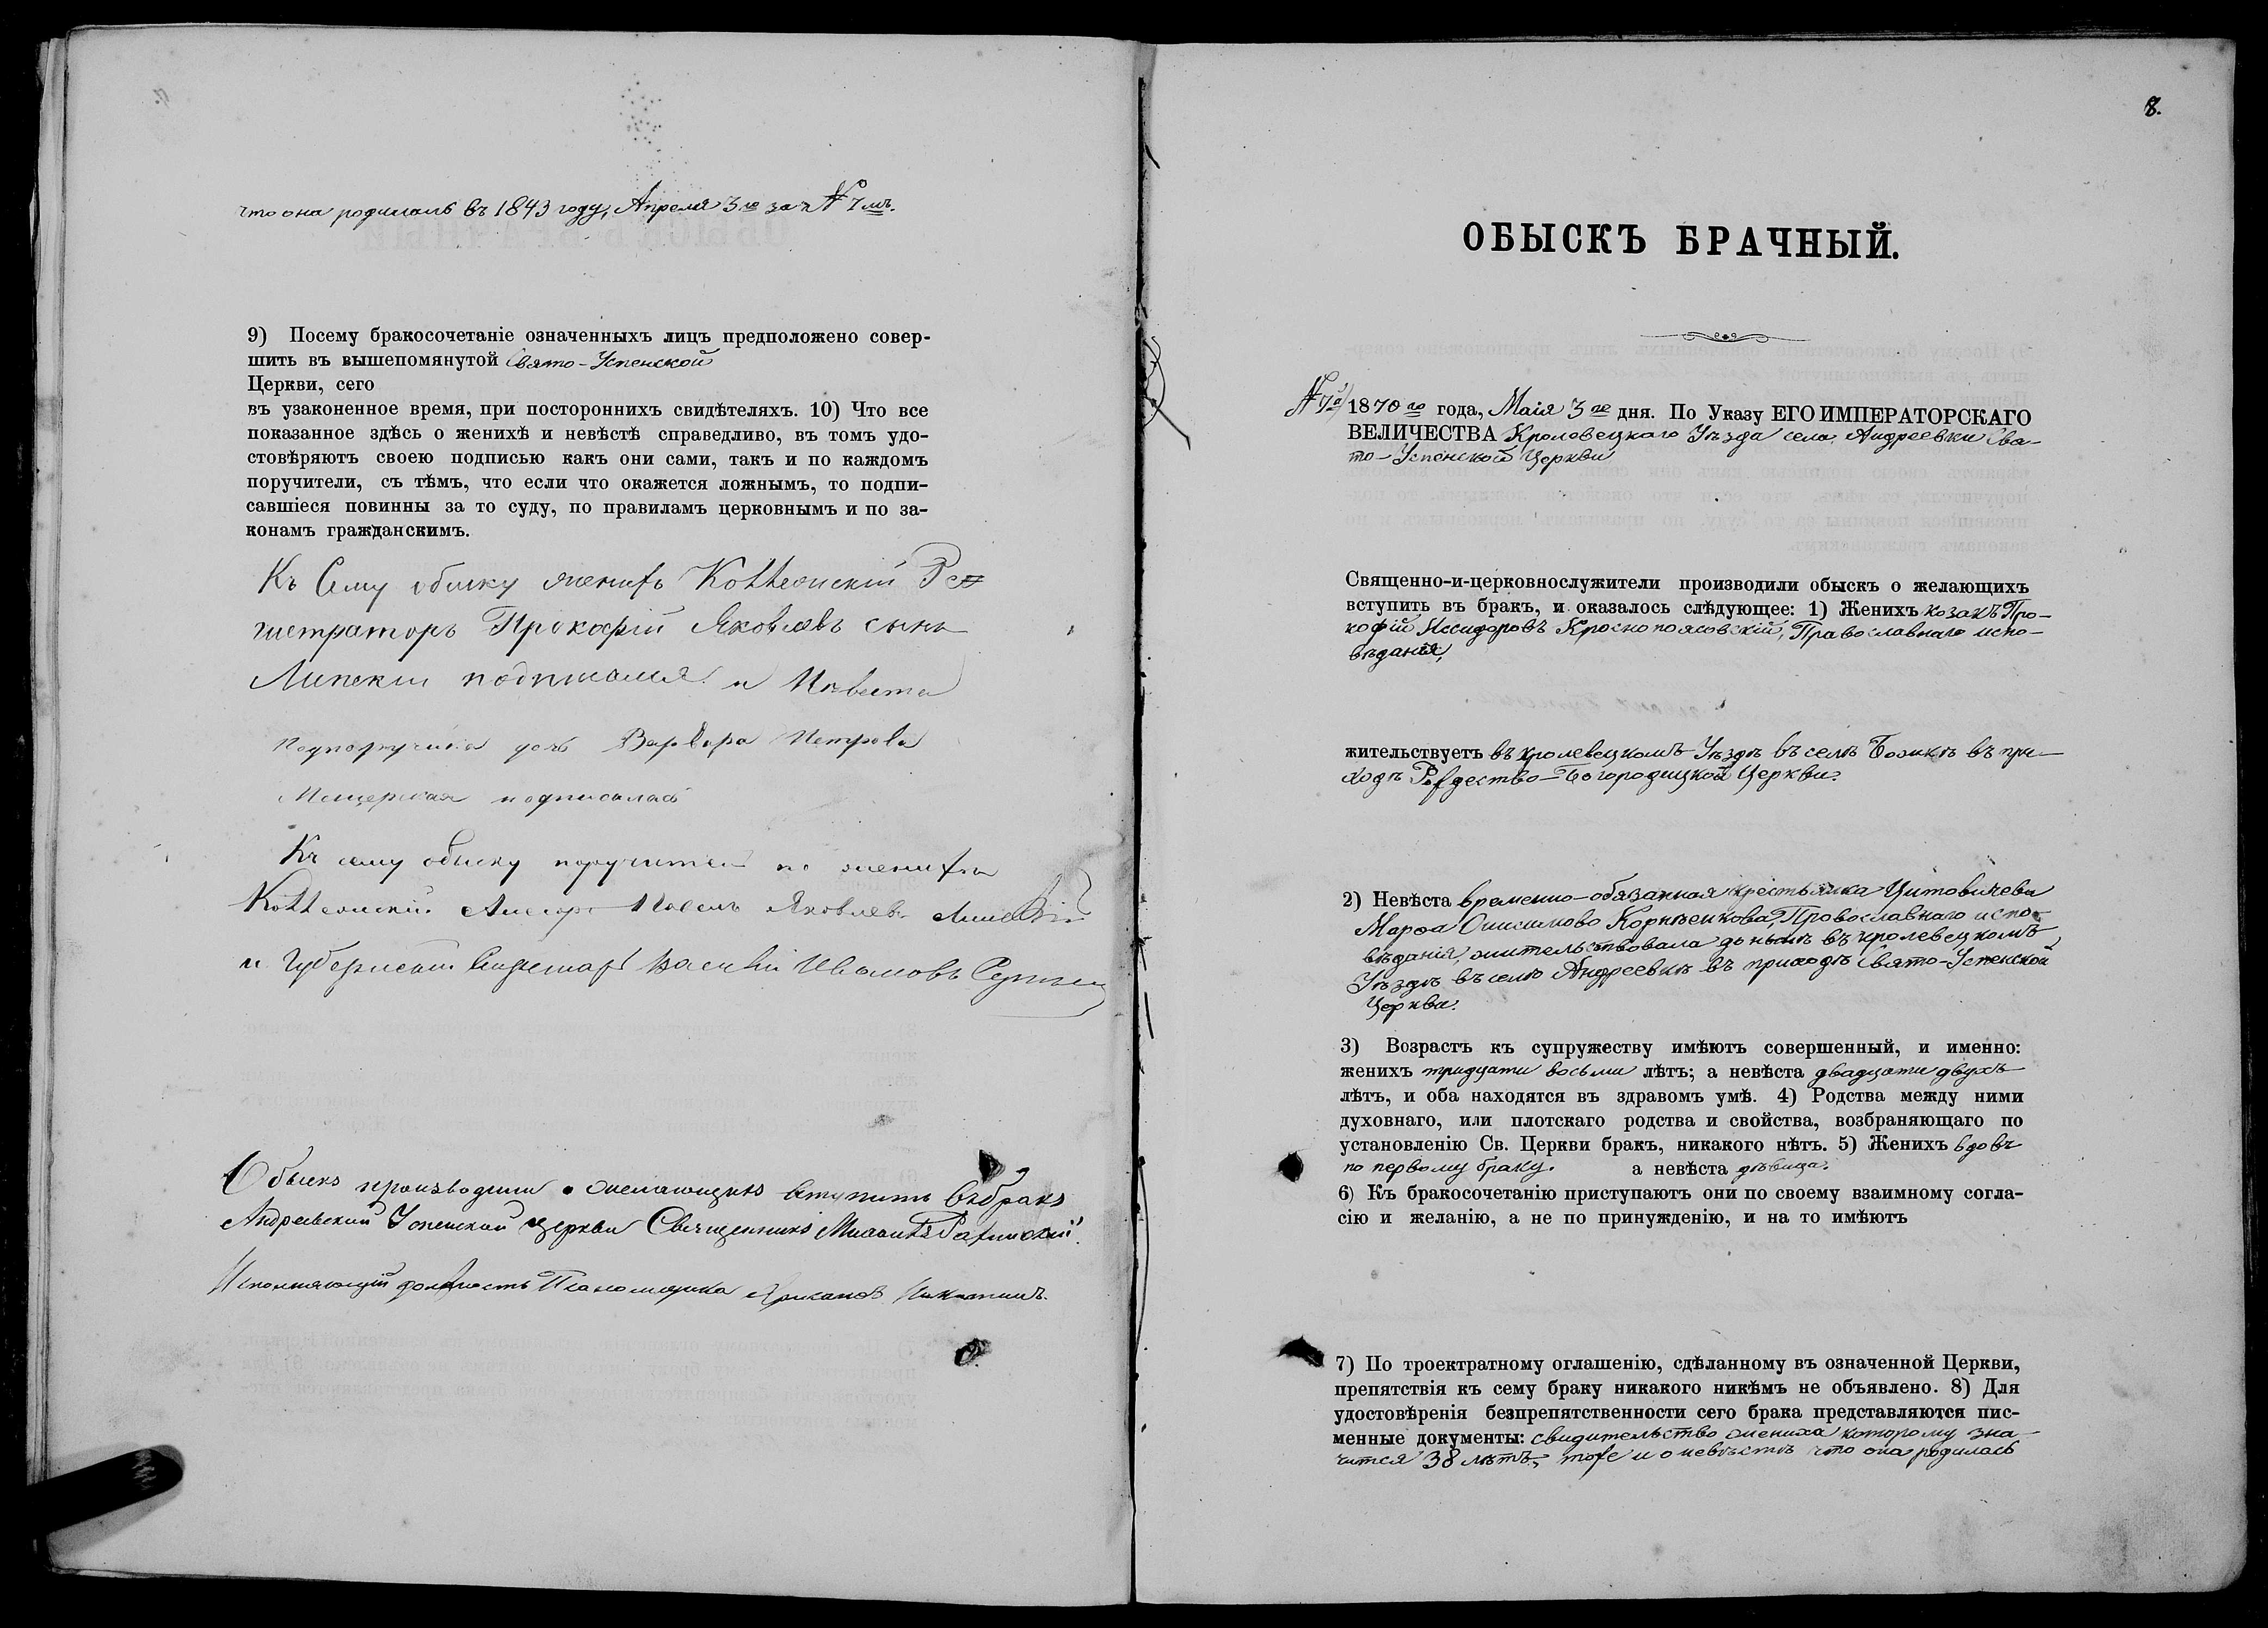 что она родилась въ 1843 году, Апреля 3го за № 7мъ.
9) Посему бракосочетаніе означенныхъ лицъ предположено совер-
шить въ вышепомянутой Свято-Успенской
Церкви, сего
въ узаконенное время, при постороннихъ свидѣтеляхъ. 10) Что все
показанное здѣсь о женихѣ и невѣстѣ справедливо, въ томъ удо-
стовѣряютъ своею подписью какъ они сами, такъ и по каждомъ
поручители, съ тѣмъ, что если что окажется ложнымъ, то подпи-
савшіеся повинны за то суду, по правиламъ церковнымъ и по за-
конамъ гражданскимъ.
Къ Сему обыску женихъ Коллежскій Ре=
гистраторъ Прокофій Яковлевъ сынъ
Липскій подписался и Невеста
Подпоручика дочь Варвара Петрова
Мещерская подписалась
Къ сему обыску поручители по женихѣ
Коллежскій Павелъ Яковлев
и Губернскій Секретарь Василій Ивановъ
Обыскъ производили о желающихъ вступить въ бракъ
Андреевской Успенской церкви Священникъ
Исполняющій должность Псаломщика
8.
ОБЫСКЪ БРАЧНЫЙ.
№ 7й 1870го года, Маія 3го дня. По Указу ЕГО ИМПЕРАТОРСКАГО
ВЕЛИЧЕСТВА Кролевецкаго Уѣзда села Андреевки Свя-
то-Успенской Церкви
Священно-и-церковнослужители производили обыскъ о желающихъ
вступить въ бракъ, и оказалось слѣдующее: 1) Женихъ козакъ Про-
кофій Иссидоровъ Краснопоясовскій, Православнаго испо-
вѣданія,
жительствуетъ въ кролевецкомъ Уѣздѣ въ селѣ въ при-
ходѣ Рождество-Богородицкой Церкви.
2) Невѣста временно-обязанная крестьянка Цитовичева
Марѳа Онисимова Корнѣенкова, Православнаго испо-
вѣданія, жительствовала до нынѣ въ кролевецкомъ
Уѣздѣ въ селѣ Андреевкѣ въ приходѣ Свято-Успенской
Церкви.
3) Возрастъ къ супружеству имѣютъ совершенный, и именно:
женихъ тридцати восьми лѣтъ; а невѣста двадцати двухъ
лѣтъ, и оба находятся въ здравомъ умѣ. 4) Родства между ними
духовнаго, или плотскаго родства и свойства, возбраняющаго по
установленію Св. Церкви бракъ, никакого нѣтъ. 5) Женихъ вдовъ
по первому браку. а невѣста дѣвица.
6) Къ бракосочетанію приступаютъ они по своему взаимному согла-
сію и желанію, а не по принужденію, и на то имѣютъ
7) По троектратному оглашенію, сдѣланному въ означенной Церкви,
препятствія къ сему браку никакого никѣмъ не объявлено. 8) Для
удостовѣренія безпрепятственности сего брака представляются пис-
менные документы: свидительство жениха которому зна-
чится 38 лѣтъ, тоже и о невѣстѣ что она родилась